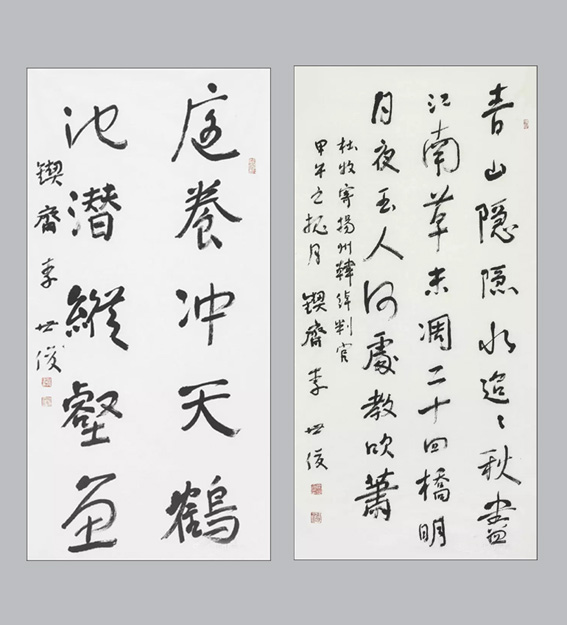 青山隐隐水迢々秋盡
江南草未凋二十四橋明
月夜玉人何處教吹簫
杜牧寄揚州韓綽判官
甲午之月 鍥齋 李世俊
庭養冲天鶴
池潛縱壑魚
鍥齋 李世俊